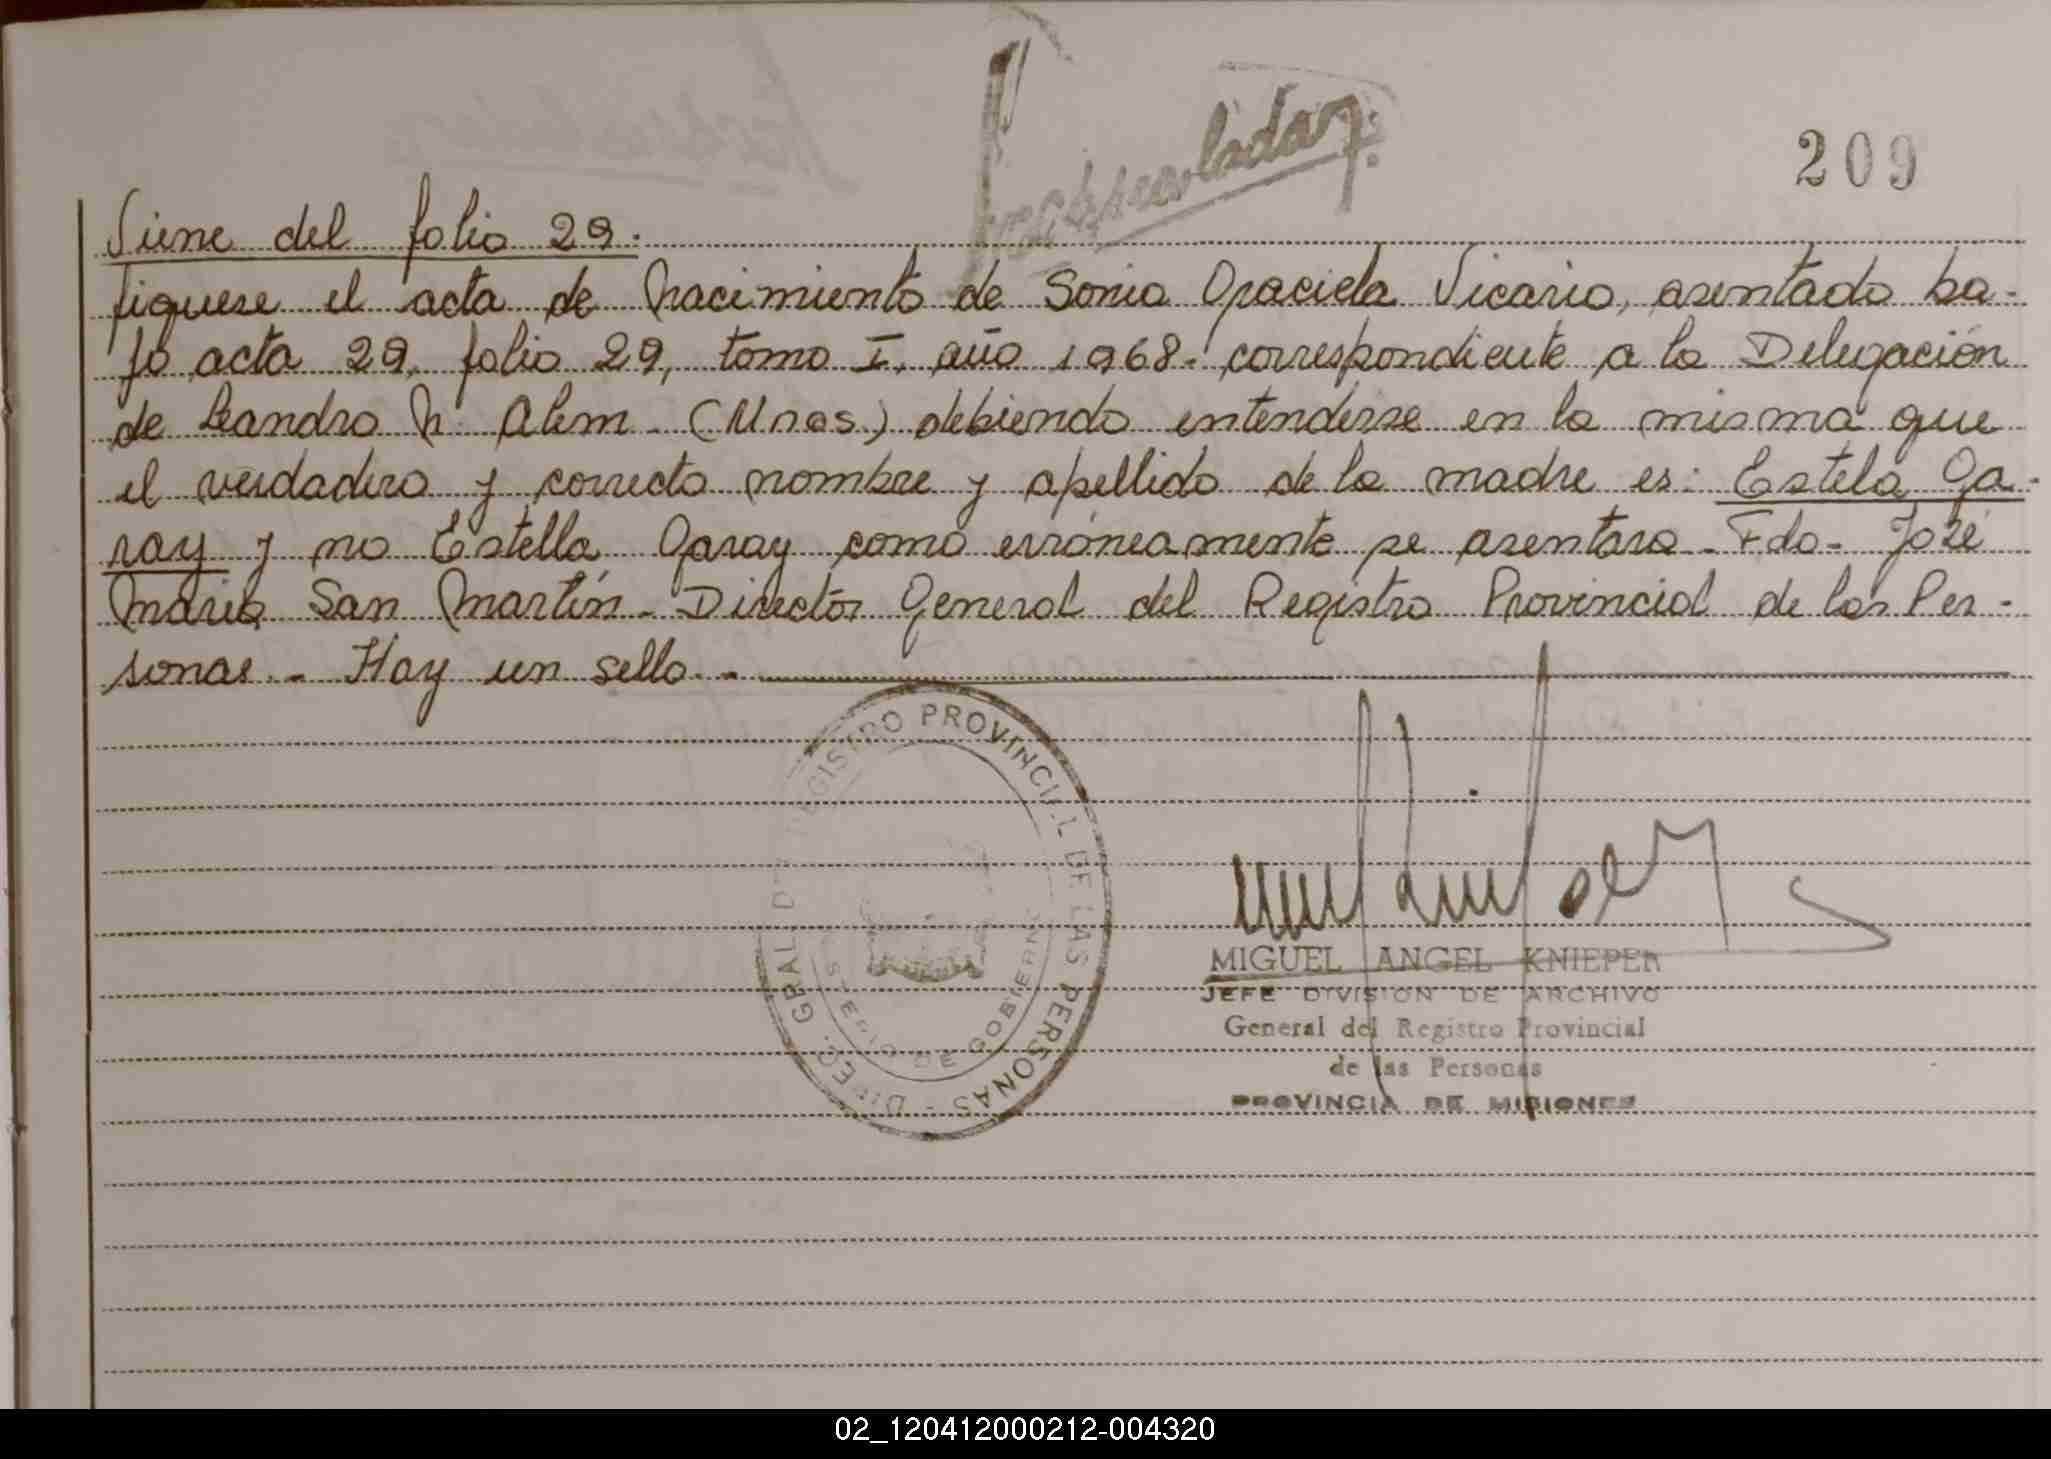 209
Viene del folio 29.
fiquese el acta de Nacimiento de Sonia Graciela Vicario, asentado ba-
jo acta 29, folio 29, tomo I, año 1968. correspondiente a la Delegación
de Leandro N. Alem - (Mnes.) debiendo entenderse en la misma que
el verdadero y correcto nombre y apellido de la madre es: Estela Ga-
ray y no Estella Garay como erróneamente se asentara - Fdo - José
Maria San Martín - Director General del Registro Provincial de las Per-
sonas. - Hay un sello. -
DIREC. GRAL. DEL REGISTRO PROVINCIAL DE LAS PERSONAS -
DE GOBIERNO
MIGUEL ANGEL KNIEPER
JEFE DIVISION DE ARCHIVO
General del Registro Provincial
de las Personas
PROVINCIA DE MISIONES
02_120412000212-004320